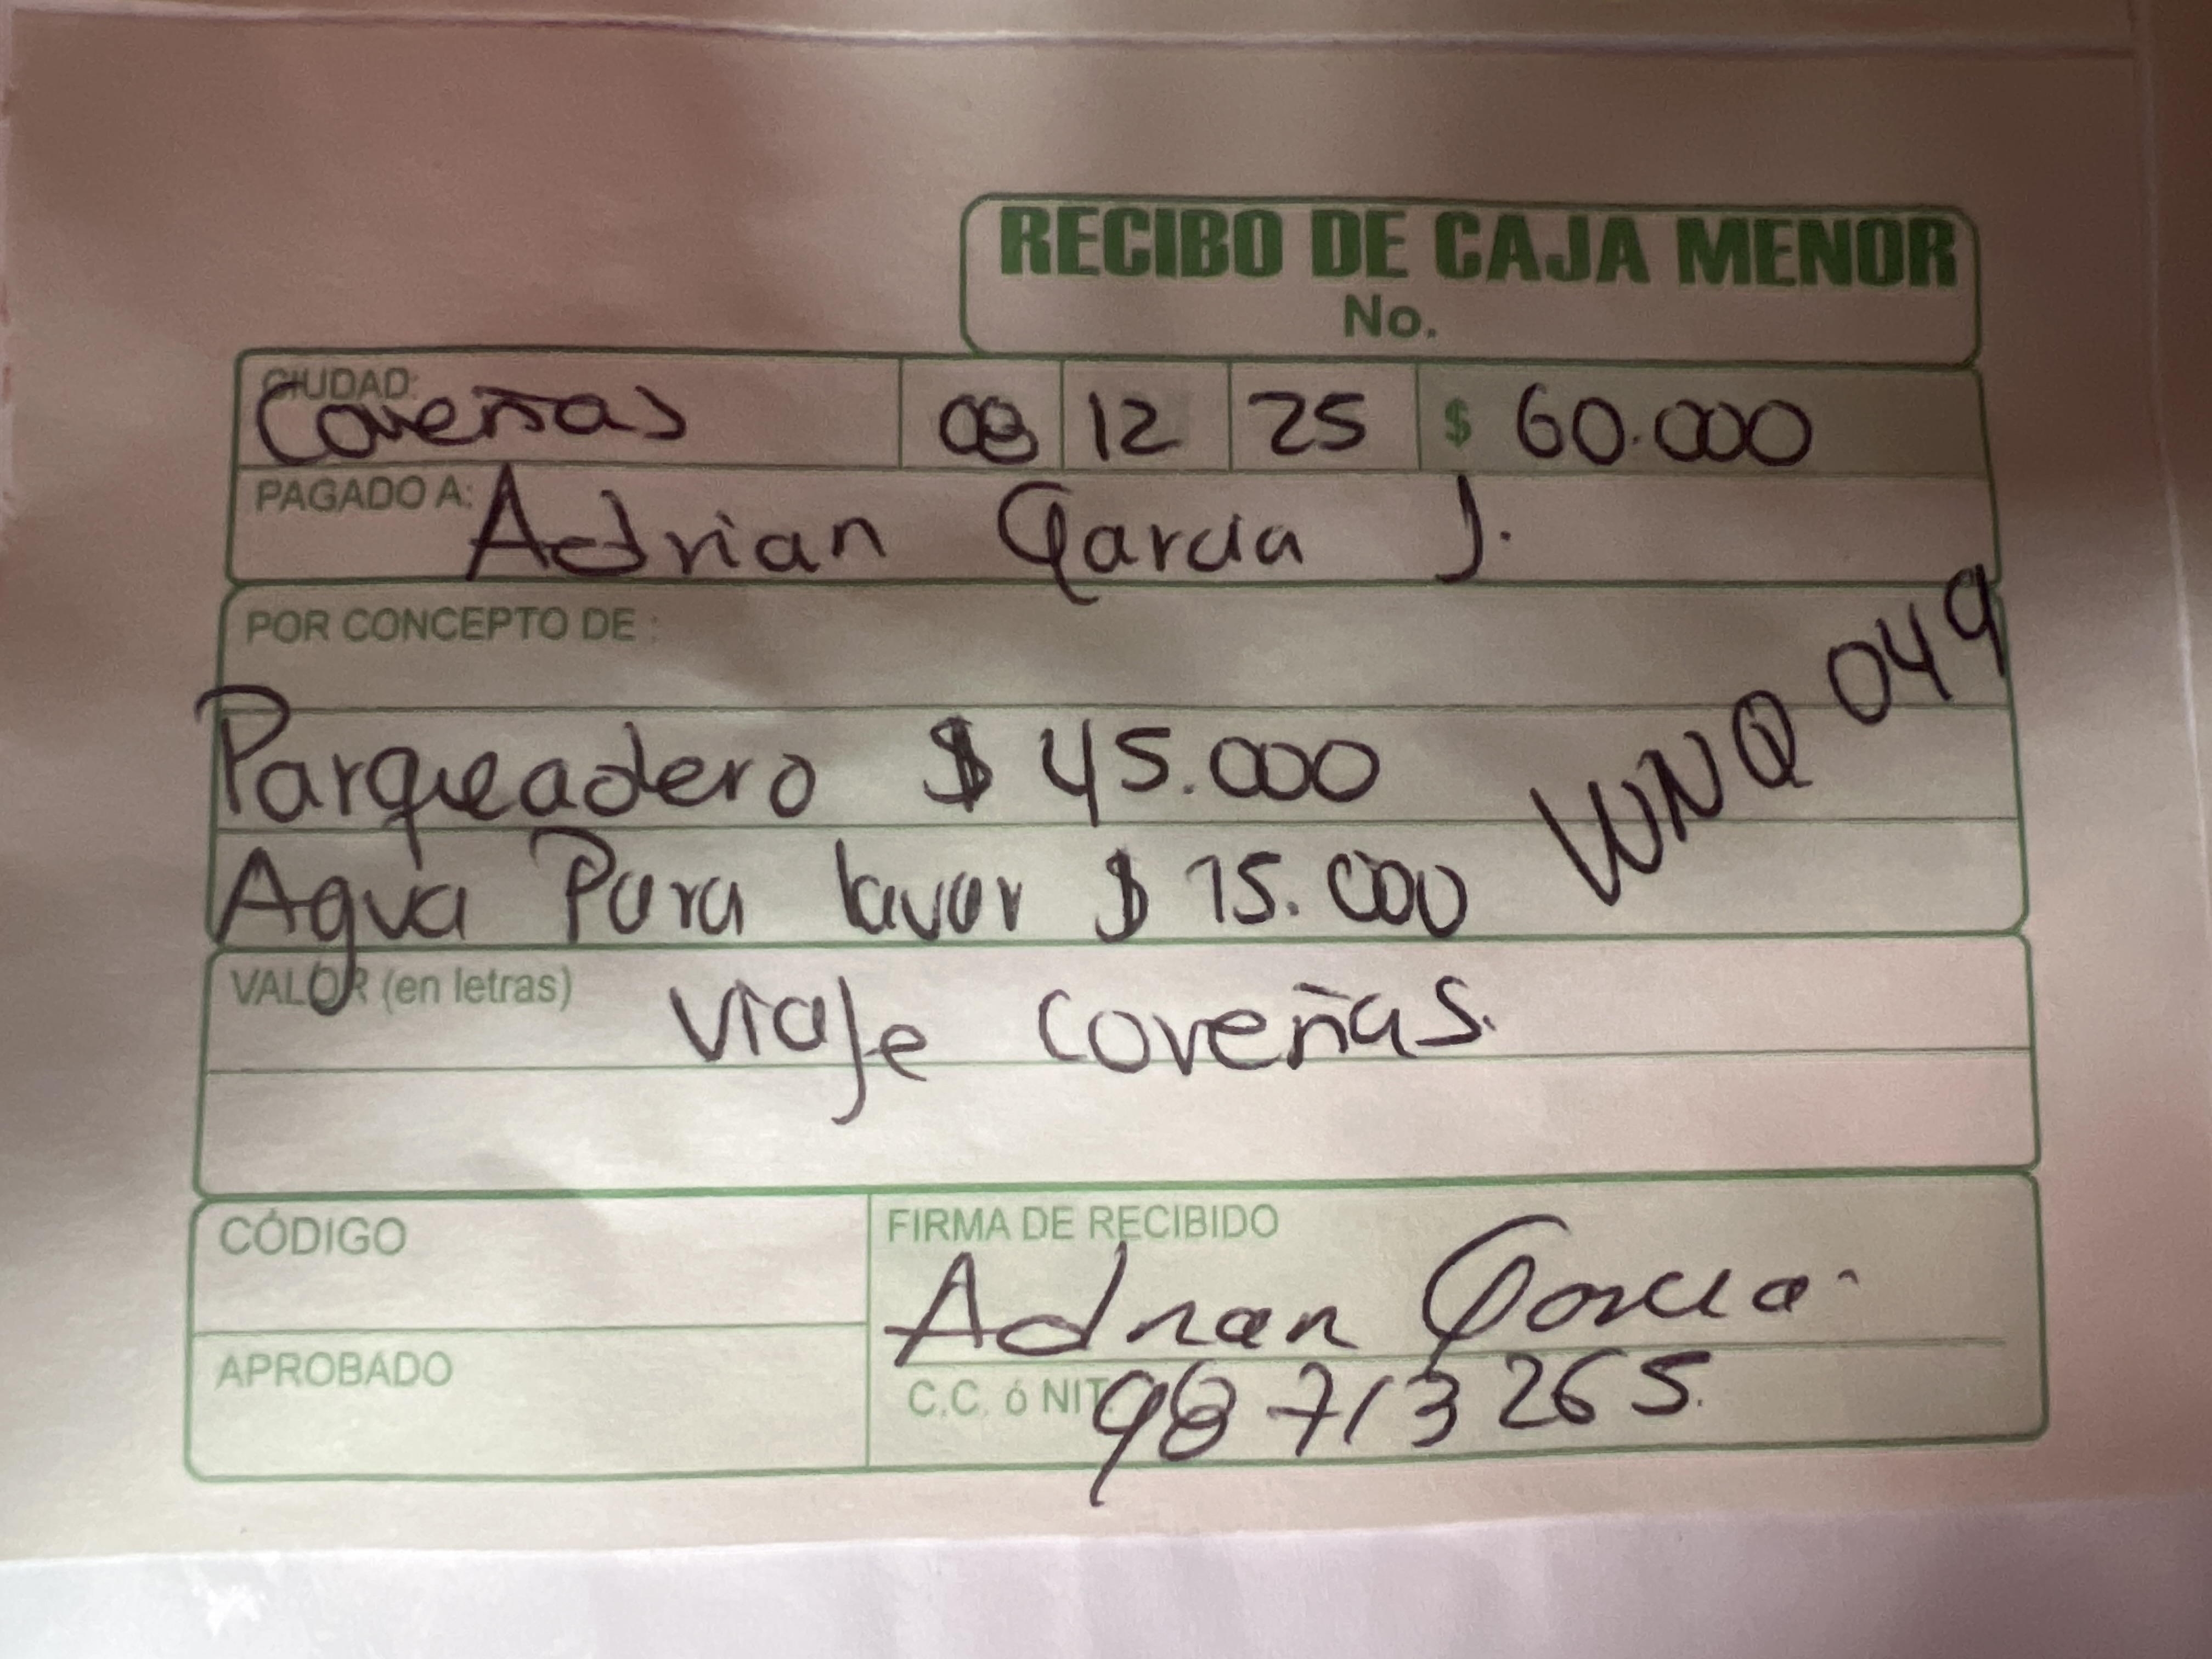 RECIBO DE CAJA MENOR
No.
CIUDAD: Coveñas 08 12 25 $ 60.000
PAGADO A: Adrian Garcia J.
POR CONCEPTO DE :
Parqueadero $ 45.000
WNQ 049
Agua Para lavar $ 15.000
VALOR (en letras) viaje coveñas.
CÓDIGO
FIRMA DE RECIBIDO
Adrian Garcia.
APROBADO
C.C. ó NIT. 98713265.